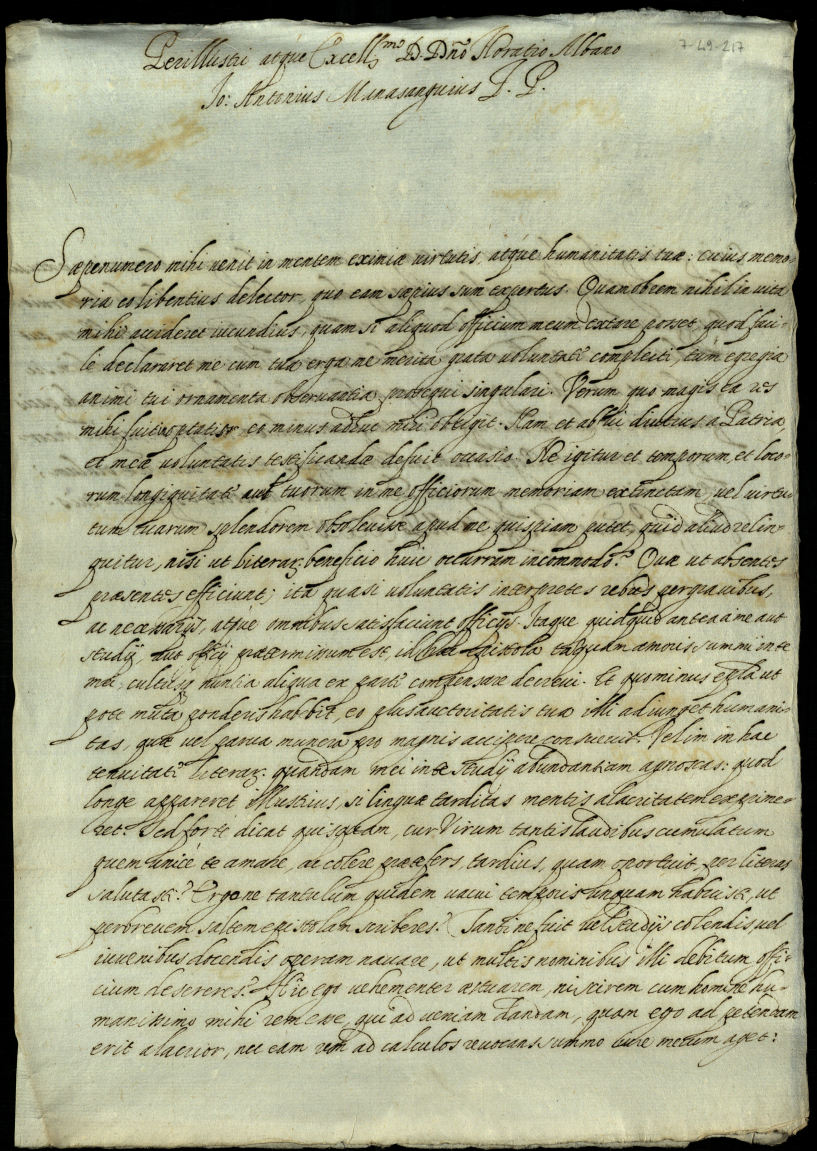 7-49-217
Perillustri atque Excell.mo D. Dño Horatio Albano
Jo: Antonius Manasanguius J. P.
Sæpenumero mihi venit in mentem eximiæ virtutis, atque humanitatis tuæ: cuius memo-
ria eo libentius delector, quo eam sæpius sum expertus. Quamobrem nihil in vita
mihi accideret iucundius, quam si aliquod officium meum extare posset, quod faci-
le declararet me cum tua erga me merita grata voluntate complecti, tum egregia
animi tui ornamenta observantia prosequi singulari. Verum quo magis ea res
mihi fuit optatior, eo minus adhuc mihi obtigit. Nam et abfui diutius a Patria,
et meæ voluntatis testificandæ defuit occasio. Ne igitur et temporum, et loco-
rum longiquitate aut tuorum in me officiorum memoriam extinctam, vel virtu-
tum tuarum splendorem obsolevisse apud me quispiam putet, quid aliud relin-
quitur, nisi ut literar. beneficio huic occurram incommodo? Quæ ut absentes
præsentes efficiunt; ita quasi voluntatis interpretes rebus pergravibus,
ac necessarijs, atque omnibus satisfaciunt officijs. Itaque quidquid antea a me aut
studij, aut officij prætermissum est, id hac epistola tamquam amoris summi in te
mei, cultusq nuntia aliqua ex parte compensare decrevi. Et quominus epla ut
pote muta ponderis habebit, eo plus auctoritatis tua illi adiunget humani-
tas, quæ vel parva munera pro magnis accipere consuevit. Velim in hac
tenuitate literar. quandam mei in te studij abundantiam agnoscas: quod
longe appareret illustrius, si linguæ tarditas mentis alacritatem exprime-
ret. Sed forte dicat quispiam, cur Virum tantis laudibus cumulatum
quem unice te amare, ac colere præfers, tardius, quam oportuit, per literas
salutasti? Ergone tantulum quidem vacui temporis unquam habuisti, ut
perbrevem saltem epistolam scriberes? Tantine fuit vel studijs colendis, vel
iuvenibus docendis operam navare, ut multis nominibus illi debitum offi-
cium desereres? Hic ego vehementer æstuarem, ni scirem cum homine hu-
manissimo mihi rem esse, qui ad veniam dandam, quam ego ad petendam
erit alacrior, nec eam rem ad calculos revocans summo iure mecum aget: